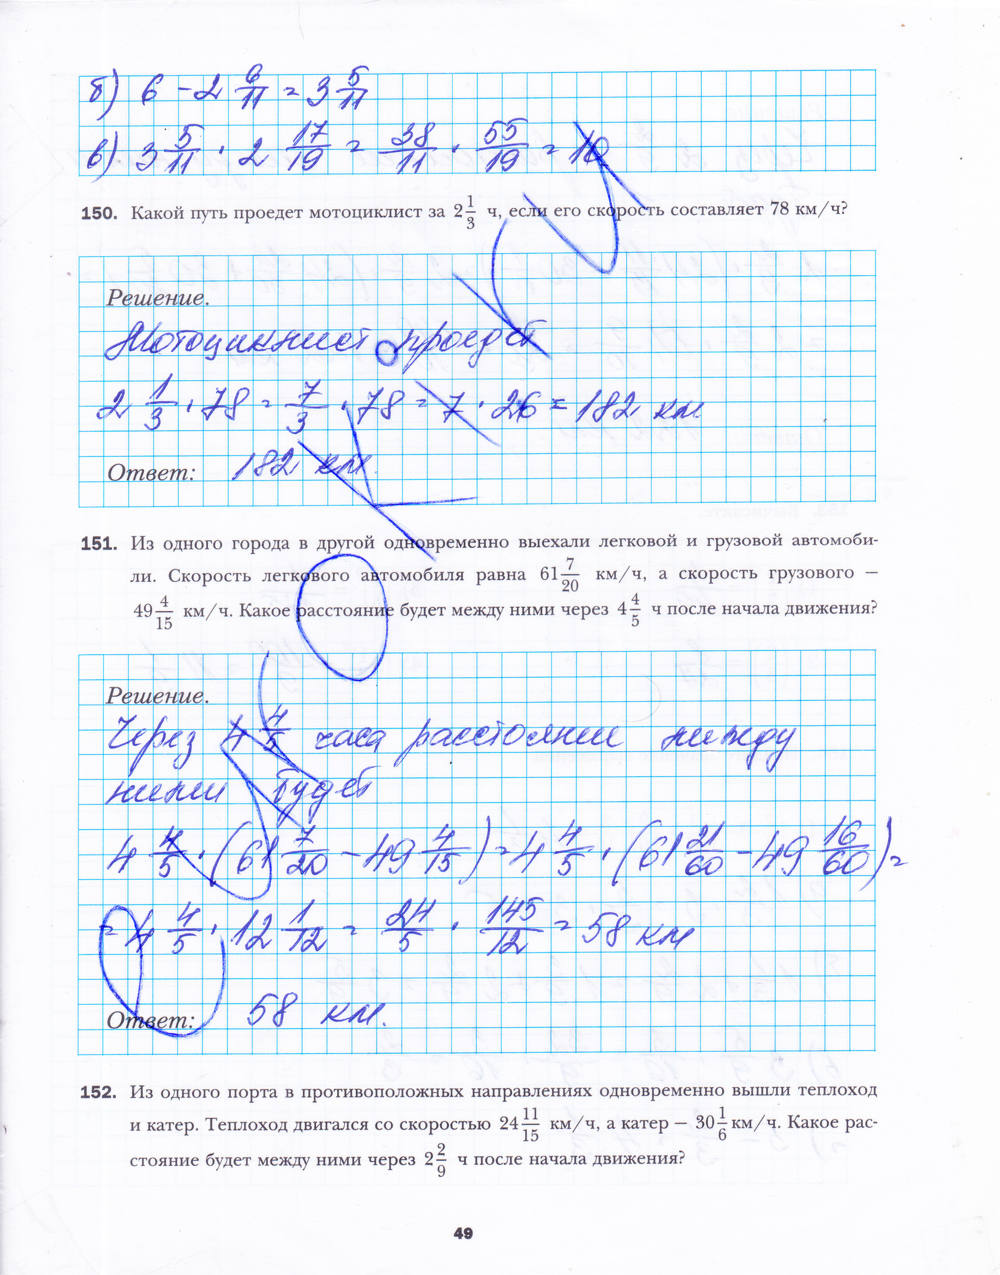 б) 6 - 2 6/11 = 3 5/11
в) 3 5/11 · 2 17/19 = 38/11 · 55/19 = 10
150. Какой путь проедет мотоциклист за 2 1/3 ч, если его скорость составляет 78 км/ч?
Решение.
Мотоциклист проедет
2 1/3 · 78 = 7/3 · 78 = 7 · 26 = 182 км
Ответ: 182 км.
151. Из одного города в другой одновременно выехали легковой и грузовой автомоби-
ли. Скорость легкового автомобиля равна 61 7/20 км/ч, а скорость грузового –
49 4/15 км/ч. Какое расстояние будет между ними через 4 4/5 ч после начала движения?
Решение.
Через 4 4/5 часа расстояние между
ними будет
4 4/5 · (61 7/20 - 49 4/15) = 4 4/5 · (61 21/60 - 49 16/60) =
= 4 4/5 · 12 1/12 = 24/5 · 145/12 = 58 км
Ответ: 58 км.
152. Из одного порта в противоположных направлениях одновременно вышли теплоход
и катер. Теплоход двигался со скоростью 24 11/15 км/ч, а катер – 30 1/6 км/ч. Какое рас-
стояние будет между ними через 2 2/9 ч после начала движения?
49